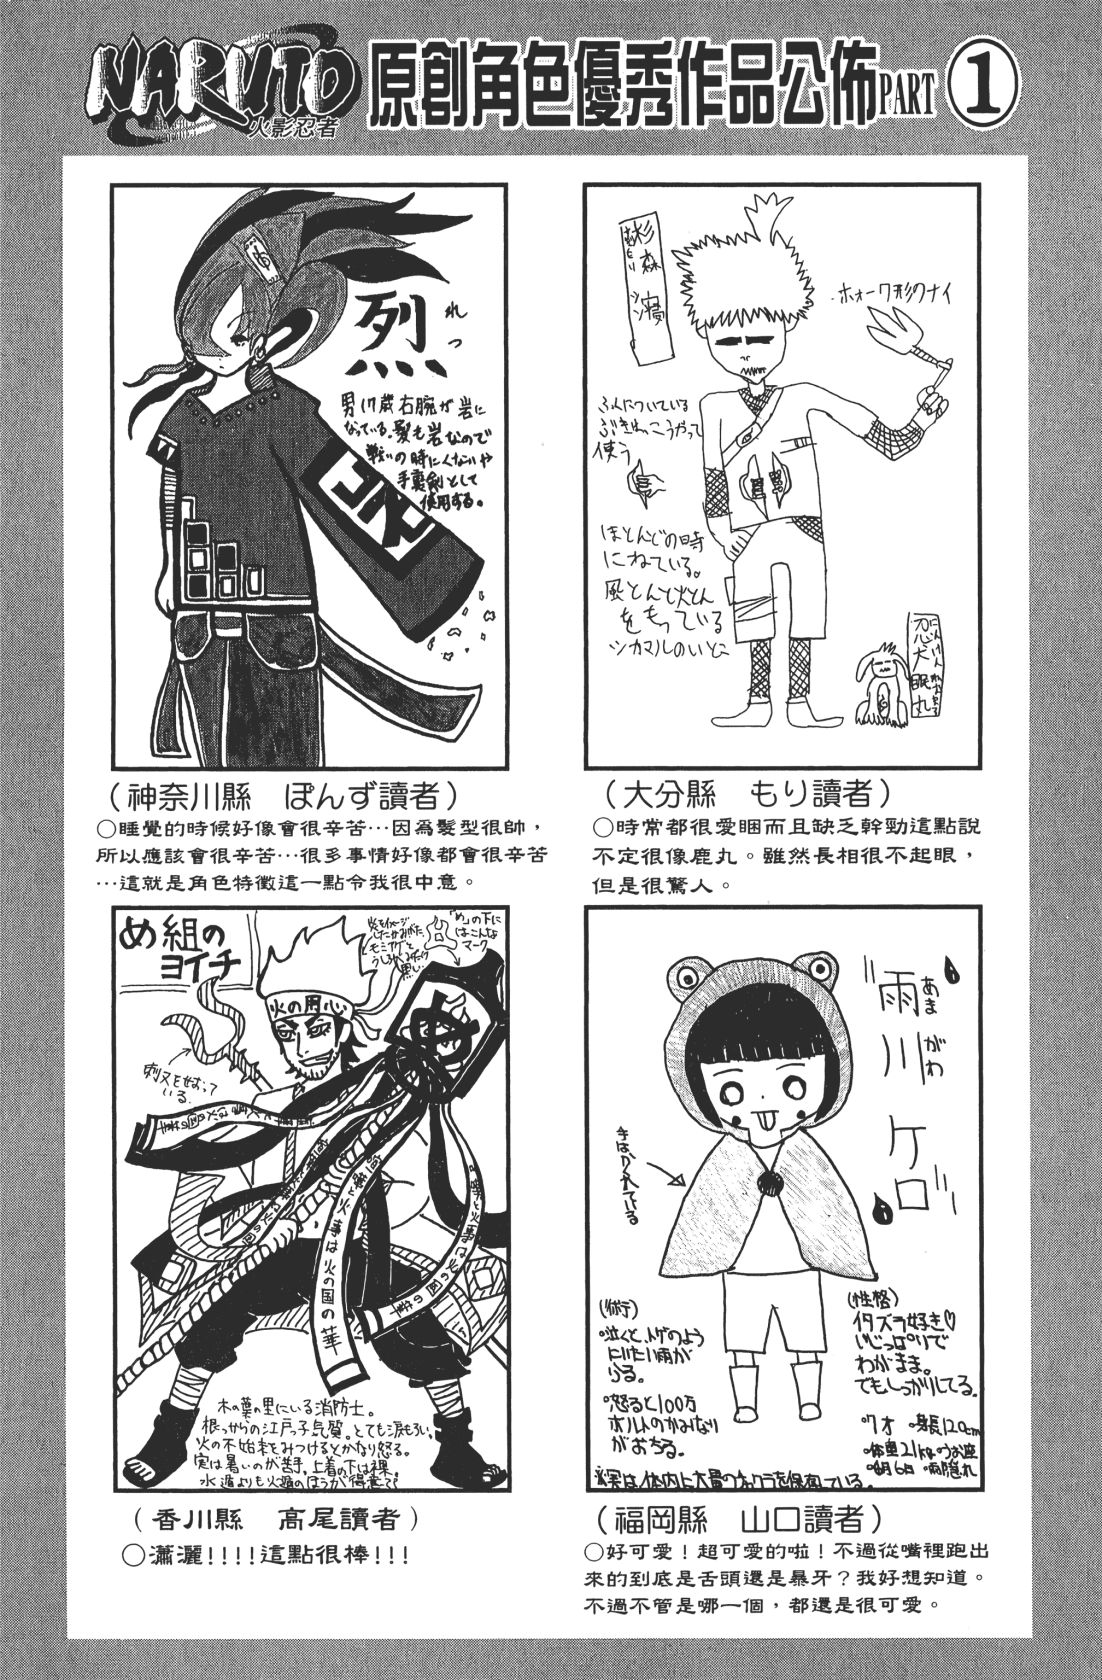 NARUTO
火影忍者
原創角色優秀作品公佈PART ①
烈
れつ
男17歳右腕が岩に
なっている。髪も岩なので
戦いの時にくないや
手裏剣として
使用する。
(神奈川縣　ぽんず讀者)
○睡覺的時候好像會很辛苦…因為髮型很帥，
所以應該會很辛苦…很多事情好像都會很辛苦
…這就是角色特徵這一點令我很中意。
杉森 寝
ホォーク形クナイ
ふくについている
ぶきはこうやって
使う
ほとんどの時
にねている。
風とんと火とん
をもっている
シカマルのいとこ
にんけん
忍犬
眠丸
(大分縣　もり讀者)
○時常都很愛睏而且缺乏幹勁這點說
不定很像鹿丸。雖然長相很不起眼，
但是很驚人。
め組の
ヨイチ
「め」の下に
はこんな
マーク
火の用心
刺又をせおって
いる。
火の国の華
木の葉の里にいる消防士。
根っからの江戸っ子気質。とても涙もろい。
火の不始末をみつけるとかなり怒る。
実は暑いのが苦手。上着の下は裸。
水遁よりも火遁のほうが得意で
(香川縣　高尾讀者)
○瀟灑!!!!這點很棒!!!
"雨川ケロ"
あまがわ
手はかくれている
(術)
・泣くと、トゲのよう
にいたい雨が
ふる。
・怒ると100万
ボルトのかみなり
がおちる。
(性格)
イタズラ好き♡
いじっぱりで
わがまま。
でもしっかりしてる。
・7才 ・身長120cm
・体重21kg ・うお座
・雨隠れ
※実は体内に大量のチャクラを保有している。
(福岡縣　山口讀者)
○好可愛！超可愛的啦！不過從嘴裡跑出
來的到底是舌頭還是暴牙？我好想知道。
不過不管是哪一個，都還是很可愛。